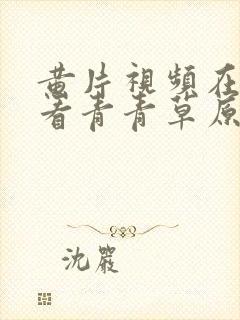 黄片視頻在
看青青草原
沈嚴